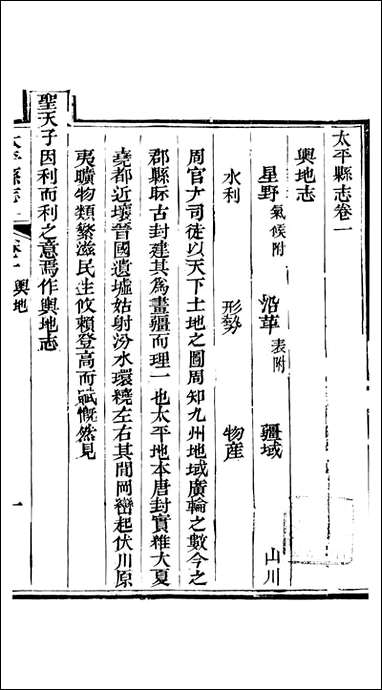 太平縣志卷一
輿地志
星野 氣候附 沿革 表附 疆域 山川
水利 形勢 物産
周官大司徒以天下土地之圖周知九州地域廣輪之數今之
郡縣眎古封建其為畫疆而理一也太平地本唐封實雜大夏
堯都近壤晉國遺墟姑射汾水環繞左右其間岡巒起伏川原
夷曠物類繁滋民生攸賴登高而賦慨然見
聖天子因利而利之意焉作輿地志
太平縣志 卷一 輿地 一